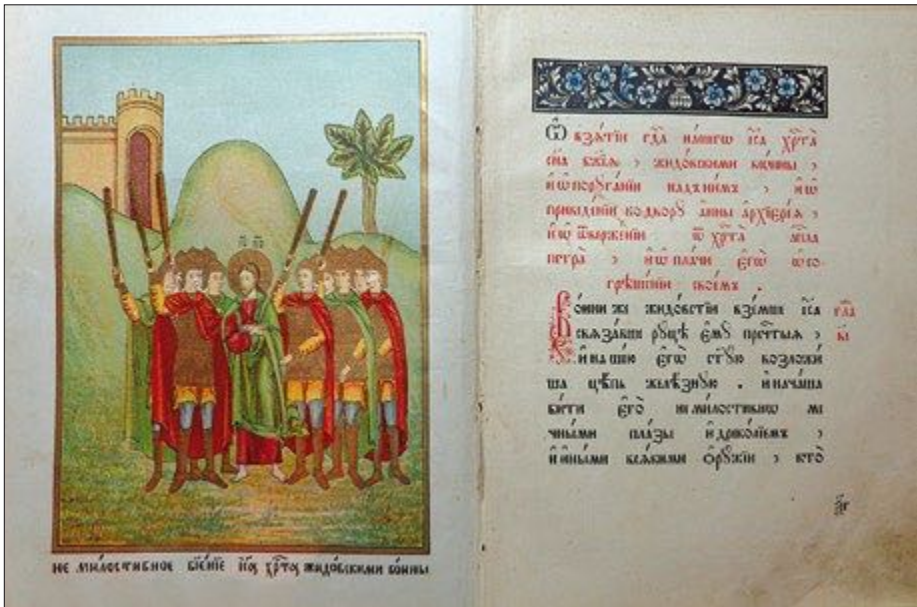 не милостивное бїенїе їс҃а хрⷭ҇та жидовскими воины
Ѡ взѧтїи гдⷭ҇а нашегѡ їс҃а хрⷭ҇та
сн҃а бж҃їѧ , жидовскими воины ,
и ѡ порꙋганїи надъ нимъ , и ѡ
приведенїи ко дворꙋ анны архїерїа ,
и ѡ ѿверженїи ѿ хрⷭ҇та
петра , и ѡ плачи єгѡ ѡ со-
грѣшенїи своемъ .
Воини же жидовстїи вземши їс҃а
связавши рꙋцѣ ємꙋ прⷱ҇тыѧ ,
и на шїю єгѡ ст҃ꙋю возложи
ша цѣпь желѣзнꙋю . и начаша
бити єго немилостивѡ ме
чными плазы и дреколїемъ ,
и иными всякими ѻрꙋжїи , кто